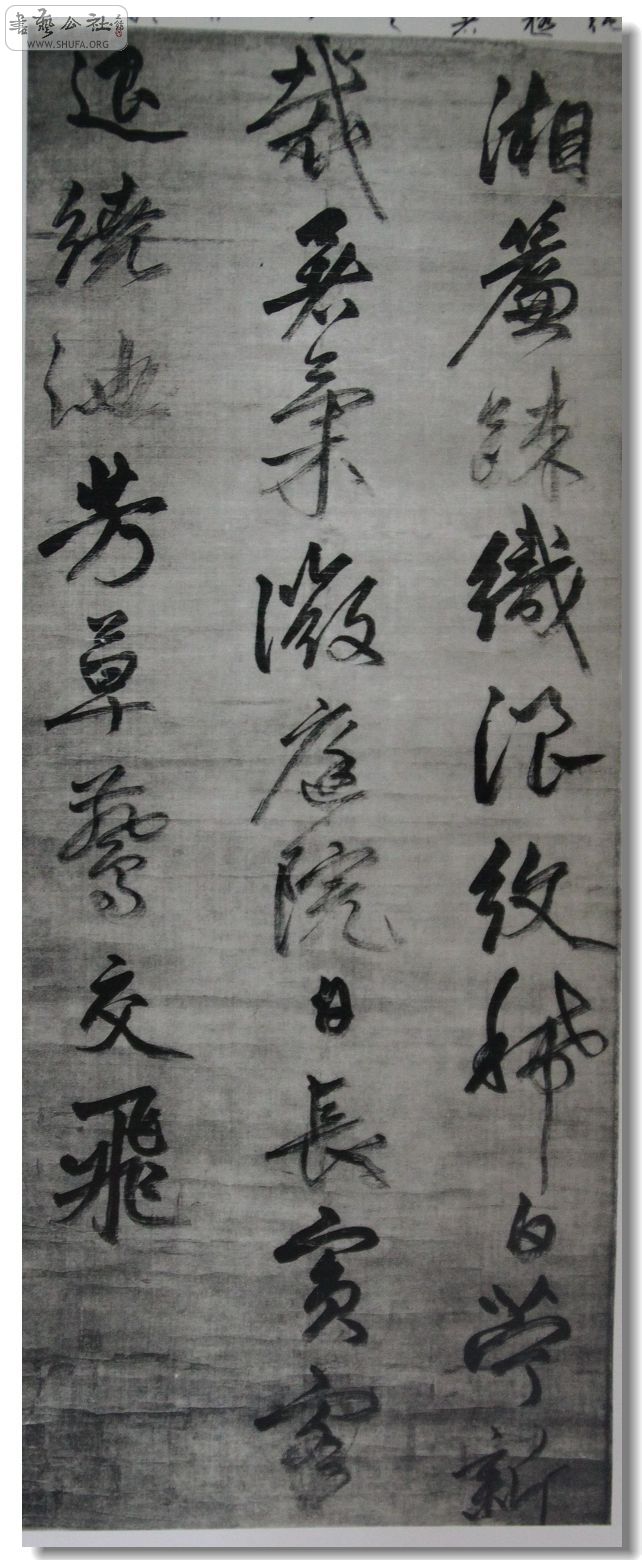 書藝公社
WWW.SHUFA.ORG
湘簾疎織浪紋稀白苧新
裁暑氣微庭院日長賓客
退繞池芳草鷰交飛